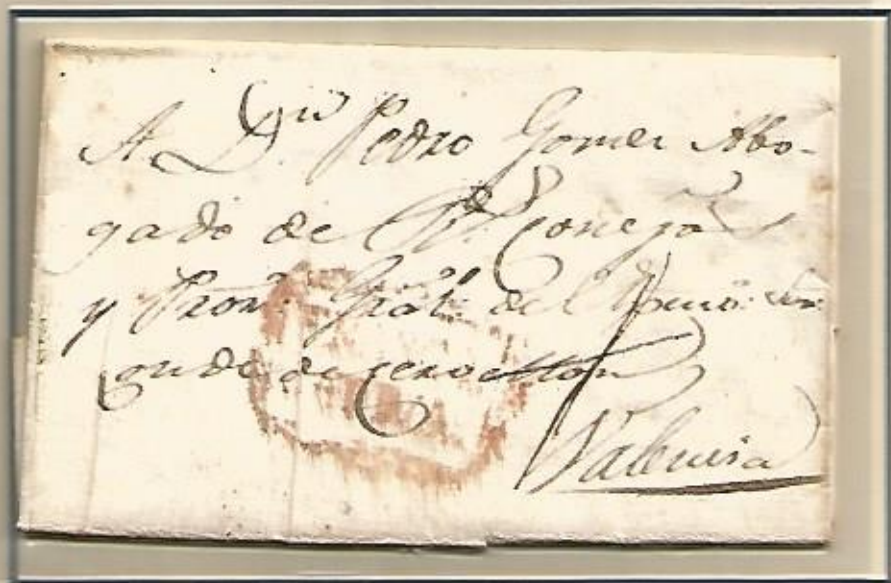 A Dn Pedro Gomez Abo-
gado de Rs. Consejos
y Proor. Gral. del Exmo. Señor
Conde de Cervellon
Valencia